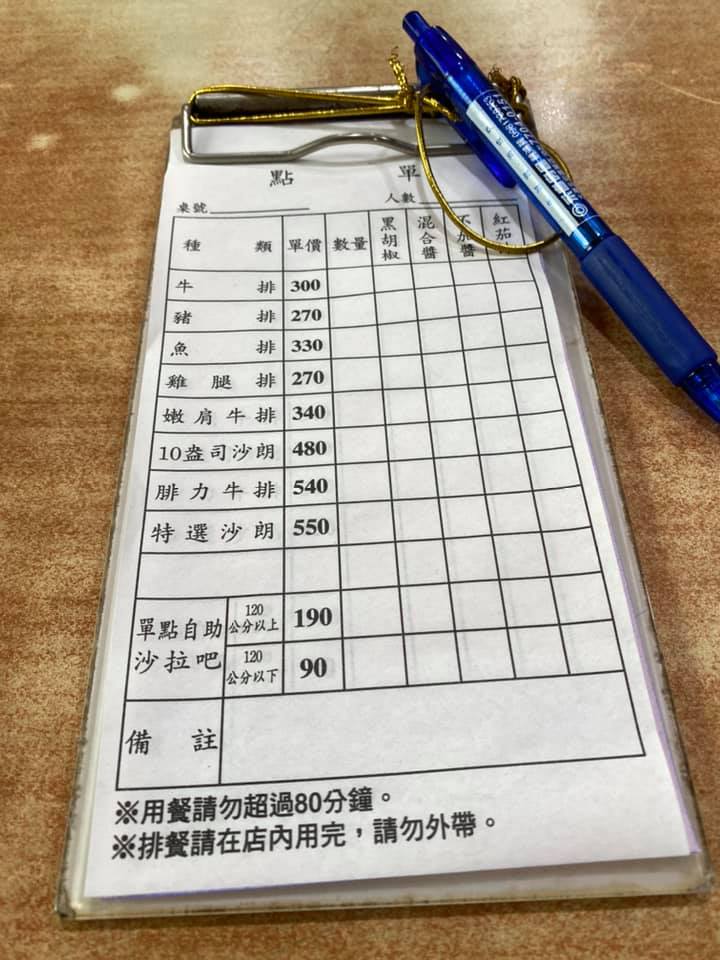 點 單
桌號 人數
種 類 單價 數量 黑胡椒 混合醬 不加醬 紅茄
牛 排 300
豬 排 270
魚 排 330
雞 腿 排 270
嫩肩牛排 340
10盎司沙朗 480
腓力牛排 540
特選沙朗 550
單點自助沙拉吧 120公分以上 190
120公分以下 90
備 註
※用餐請勿超過80分鐘。
※排餐請在店內用完，請勿外帶。